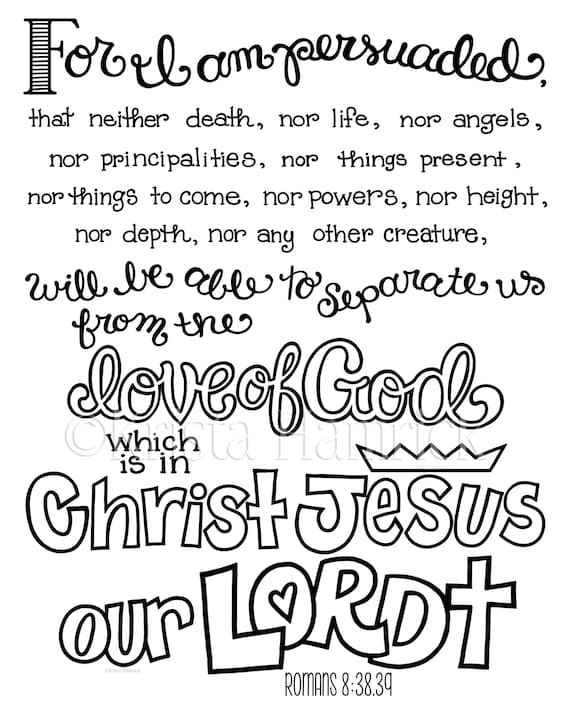 For I am persuaded,
that neither death, nor life, nor angels,
nor principalities, nor things present,
nor things to come, nor powers, nor height,
nor depth, nor any other creature,
will be able to separate us
from the
love of God
©Krista Hamrick
which
is in
Christ Jesus
our LORD
ROMANS 8:38.39